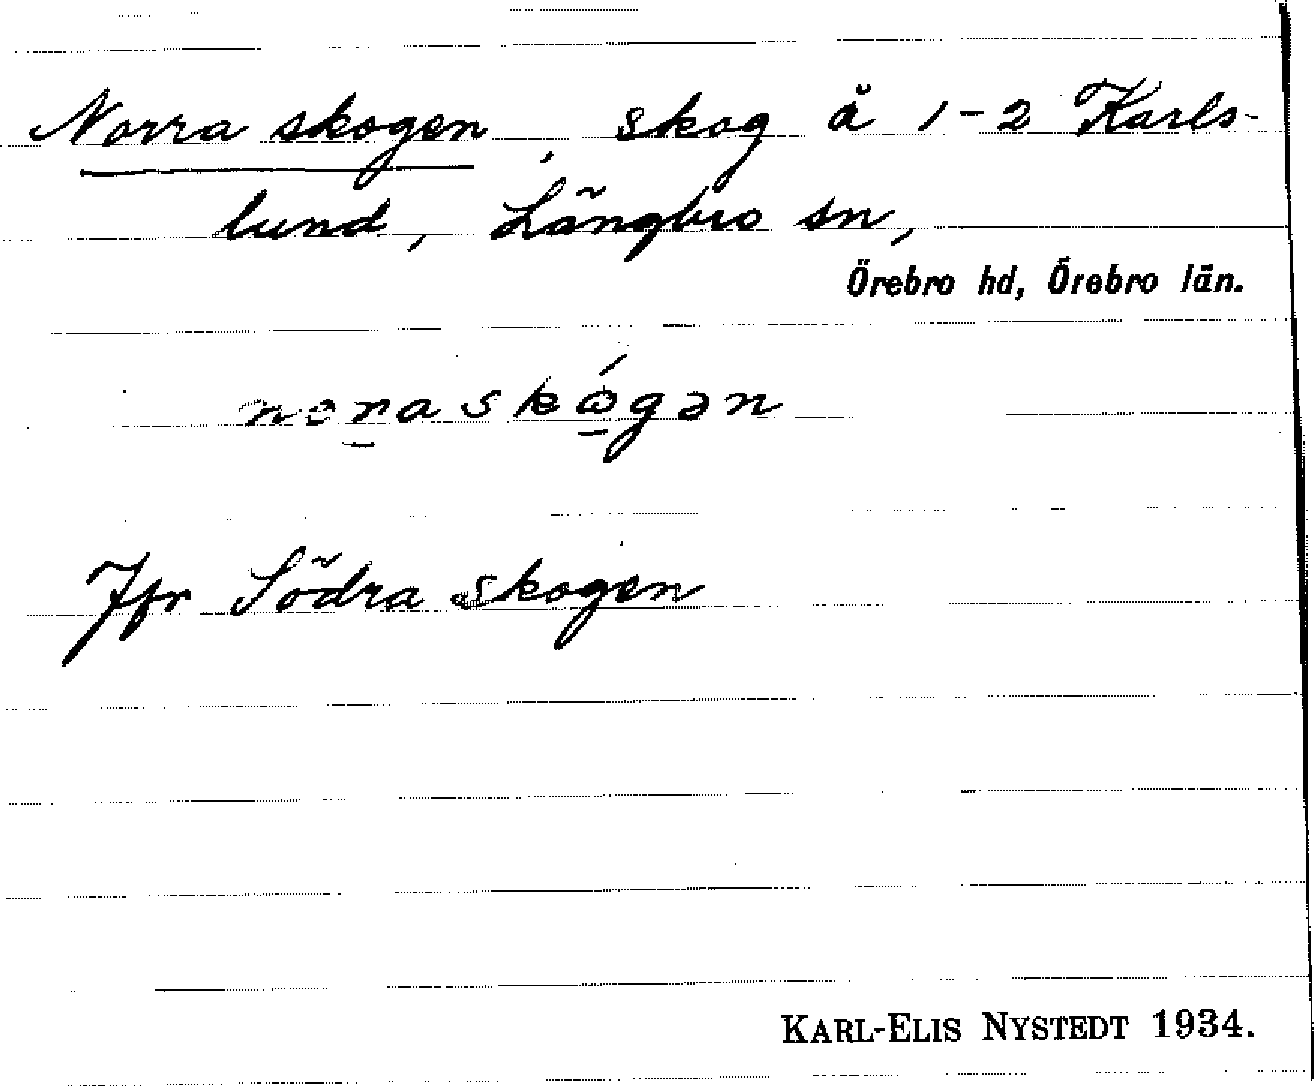 Norra skogen, skog å 1-2 Karls-
lund, Längbro sn,
Örebro hd, Örebro län.
noraskógən
Jfr Södra skogen
KARL-ELIS NYSTEDT 1934.